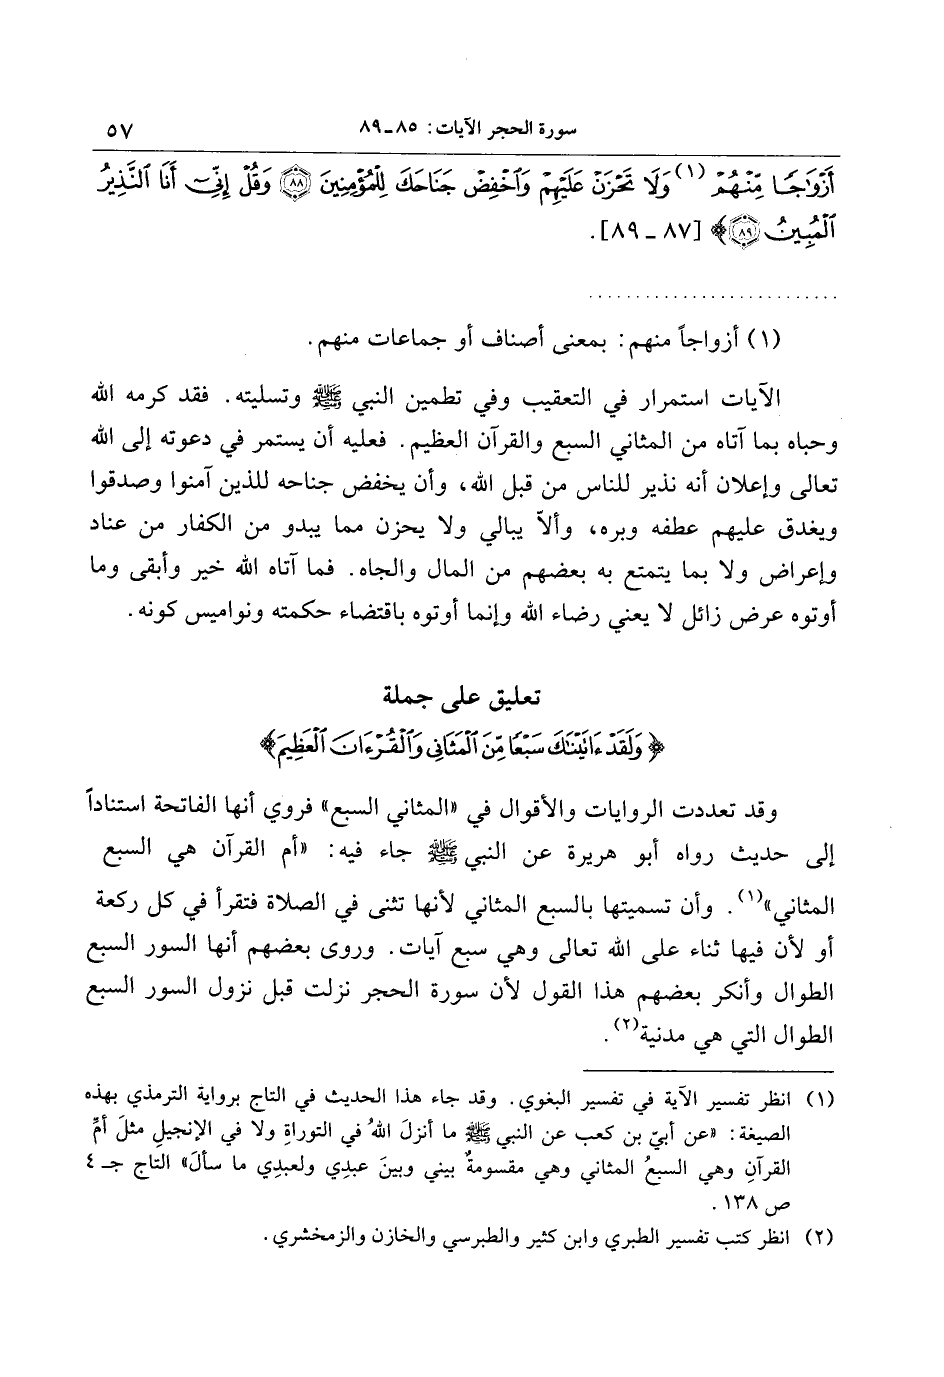 سورة الحجر الآيات: ٨٥-٨٩ ٥٧
أَزْوَٰجًا مِّنْهُمْ (١) وَلَا تَحْزَنْ عَلَيْهِمْ وَٱخْفِضْ جَنَاحَكَ لِلْمُؤْمِنِينَ ٨٨ وَقُلْ إِنِّىٓ أَنَا ٱلنَّذِيرُ
ٱلْمُبِينُ ٨٩﴾ [٨٧ - ٨٩].
(١) أزواجاً منهم: بمعنى أصناف أو جماعات منهم.
الآيات استمرار في التعقيب وفي تطمين النبي ﷺ وتسليته. فقد كرمه الله
وحباه بما آتاه من المثاني السبع والقرآن العظيم. فعليه أن يستمر في دعوته إلى الله
تعالى وإعلان أنه نذير للناس من قبل الله، وأن يخفض جناحه للذين آمنوا وصدقوا
ويغدق عليهم عطفه وبره، وألاّ يبالي ولا يحزن مما يبدو من الكفار من عناد
وإعراض ولا بما يتمتع به بعضهم من المال والجاه. فما آتاه الله خير وأبقى وما
أوتوه عرض زائل لا يعني رضاء الله وإنما أوتوه باقتضاء حكمته ونواميس كونه.
تعليق على جملة
﴿وَلَقَدْ ءَاتَيْنَٰكَ سَبْعًا مِّنَ ٱلْمَثَانِى وَٱلْقُرْءَانَ ٱلْعَظِيمَ﴾
وقد تعددت الروايات والأقوال في «المثاني السبع» فروي أنها الفاتحة استناداً
إلى حديث رواه أبو هريرة عن النبي ﷺ جاء فيه: «أم القرآن هي السبع
المثاني»(١). وأن تسميتها بالسبع المثاني لأنها تثنى في الصلاة فتقرأ في كل ركعة
أو لأن فيها ثناء على الله تعالى وهي سبع آيات. وروى بعضهم أنها السور السبع
الطوال وأنكر بعضهم هذا القول لأن سورة الحجر نزلت قبل نزول السور السبع
الطوال التي هي مدنية(٢).
(١) انظر تفسير الآية في تفسير البغوي. وقد جاء هذا الحديث في التاج برواية الترمذي بهذه
الصيغة: «عن أبيّ بن كعب عن النبي ﷺ ما أنزلَ اللهُ في التوراةِ ولا في الإنجيلِ مثلَ أمِّ
القرآنِ وهي السبعُ المثاني وهي مقسومةٌ بيني وبينَ عبدِي ولعبدِي ما سألَ» التاج جـ ٤
ص ١٣٨.
(٢) انظر كتب تفسير الطبري وابن كثير والطبرسي والخازن والزمخشري.